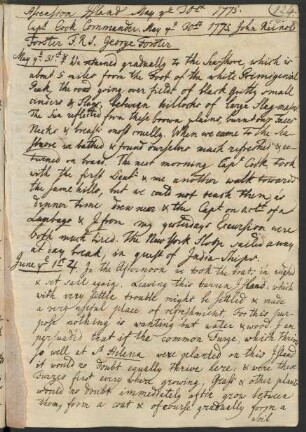 Ascension Island May ye 30th 1775. 124
Capt Cook Commander. May ye 30th 1775. John Reinold
Forster F.R.S. George Forster
May ye 31st We returned gradually to the Seashore, which is
about 5 miles from the Foot of the white Primigenial
Peak, the road going over fields of black gritty small
cinders & Slags, between hillocks of large Slag-masses
The Sun reflected from these brown plains, burnt our faces
Necks & breasts most cruelly. When we came to the Sea
Shore we bathed & found ourselves much refreshed & re-
turned on board. The next morning Capt Cook took
with the first Lieut & me another walk towards
the same hills, but we could not reach them as
dinner time drew near & the Capt on acct of a
& I from my yesterdays Excursion were
both much tired. The New York Sloop sailed away
at day break, in quest of India Ships.
June ye 1st In the Afternoon we took the boat in, weighed
& set sail again. Leaving this barren Island, which
with very little trouble might be settled & made
a very useful place of refreshment. For this pur-
pose nothing is wanting but water & wood. I am
persuaded that if the common Furze, which thrives
so well at St Helena were planted on this Island
it would no doubt equally thrive here, & were these
Furzes first every where growing, Grass & other plants
would no doubt immediately after grow between
them, form a coat & of course gradually form a
soil